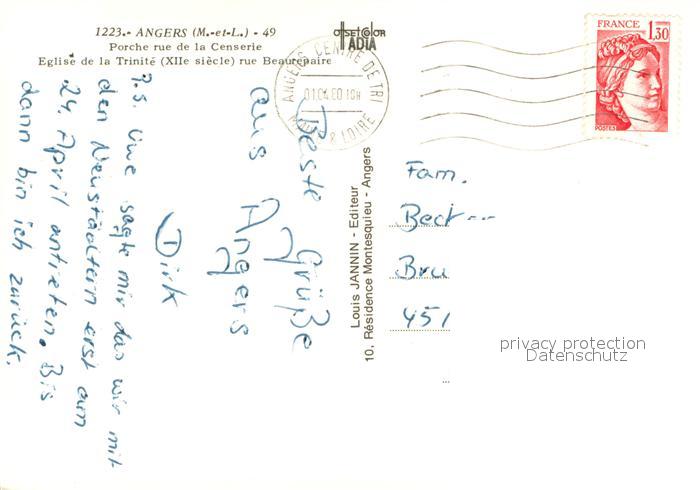 1223.- ANGERS (M.-et-L.) - 49
Porche rue de la Censerie
Eglise de la Trinité (XIIe siècle) rue Beaurepaire
offset color
IADIA
ANGERS CENTRE DE TRI
MAINE & LOIRE
FRANCE
1,30
POSTES
Beste Grüße
aus Angers
Dirk
P.S. Uwe sagte mir das wir mit
den Neustädtern erst am
24. April antreten. Bis
dann bin ich zurück.
Louis JANNIN - Editeur
10, Résidence Montesquieu - Angers
Fam.
Beck
Bru
451
privacy protection
Datenschutz